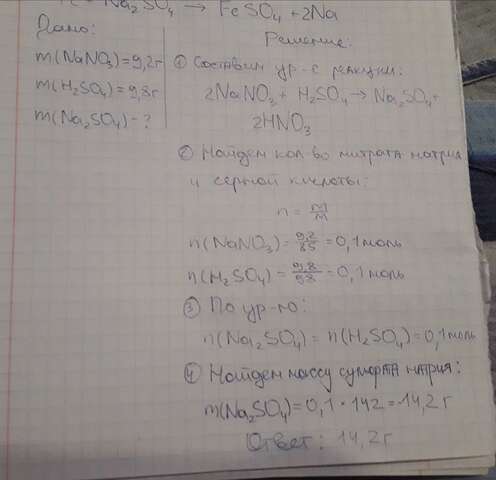 Na₂SO₄ → FeSO₄ + 2Na
Дано:
m(NaNO₃)=9,2г
m(H₂SO₄)=9,8г
m(Na₂SO₄)-?
Решение:
① Составим ур-е реакции:
2NaNO₃ + H₂SO₄ → Na₂SO₄+
2HNO₃
② Найдем кол-во нитрата натрия
и серной кислоты:
n = m/M
n(NaNO₃) = 9,2/85 = 0,1 моль
n(H₂SO₄) = 9,8/98 = 0,1 моль
③ По ур-ю:
n(Na₂SO₄) = n(H₂SO₄) = 0,1 моль
④ Найдем массу натрия:
m(Na₂SO₄) = 0,1 · 142 = 14,2 г
Ответ: 14,2г